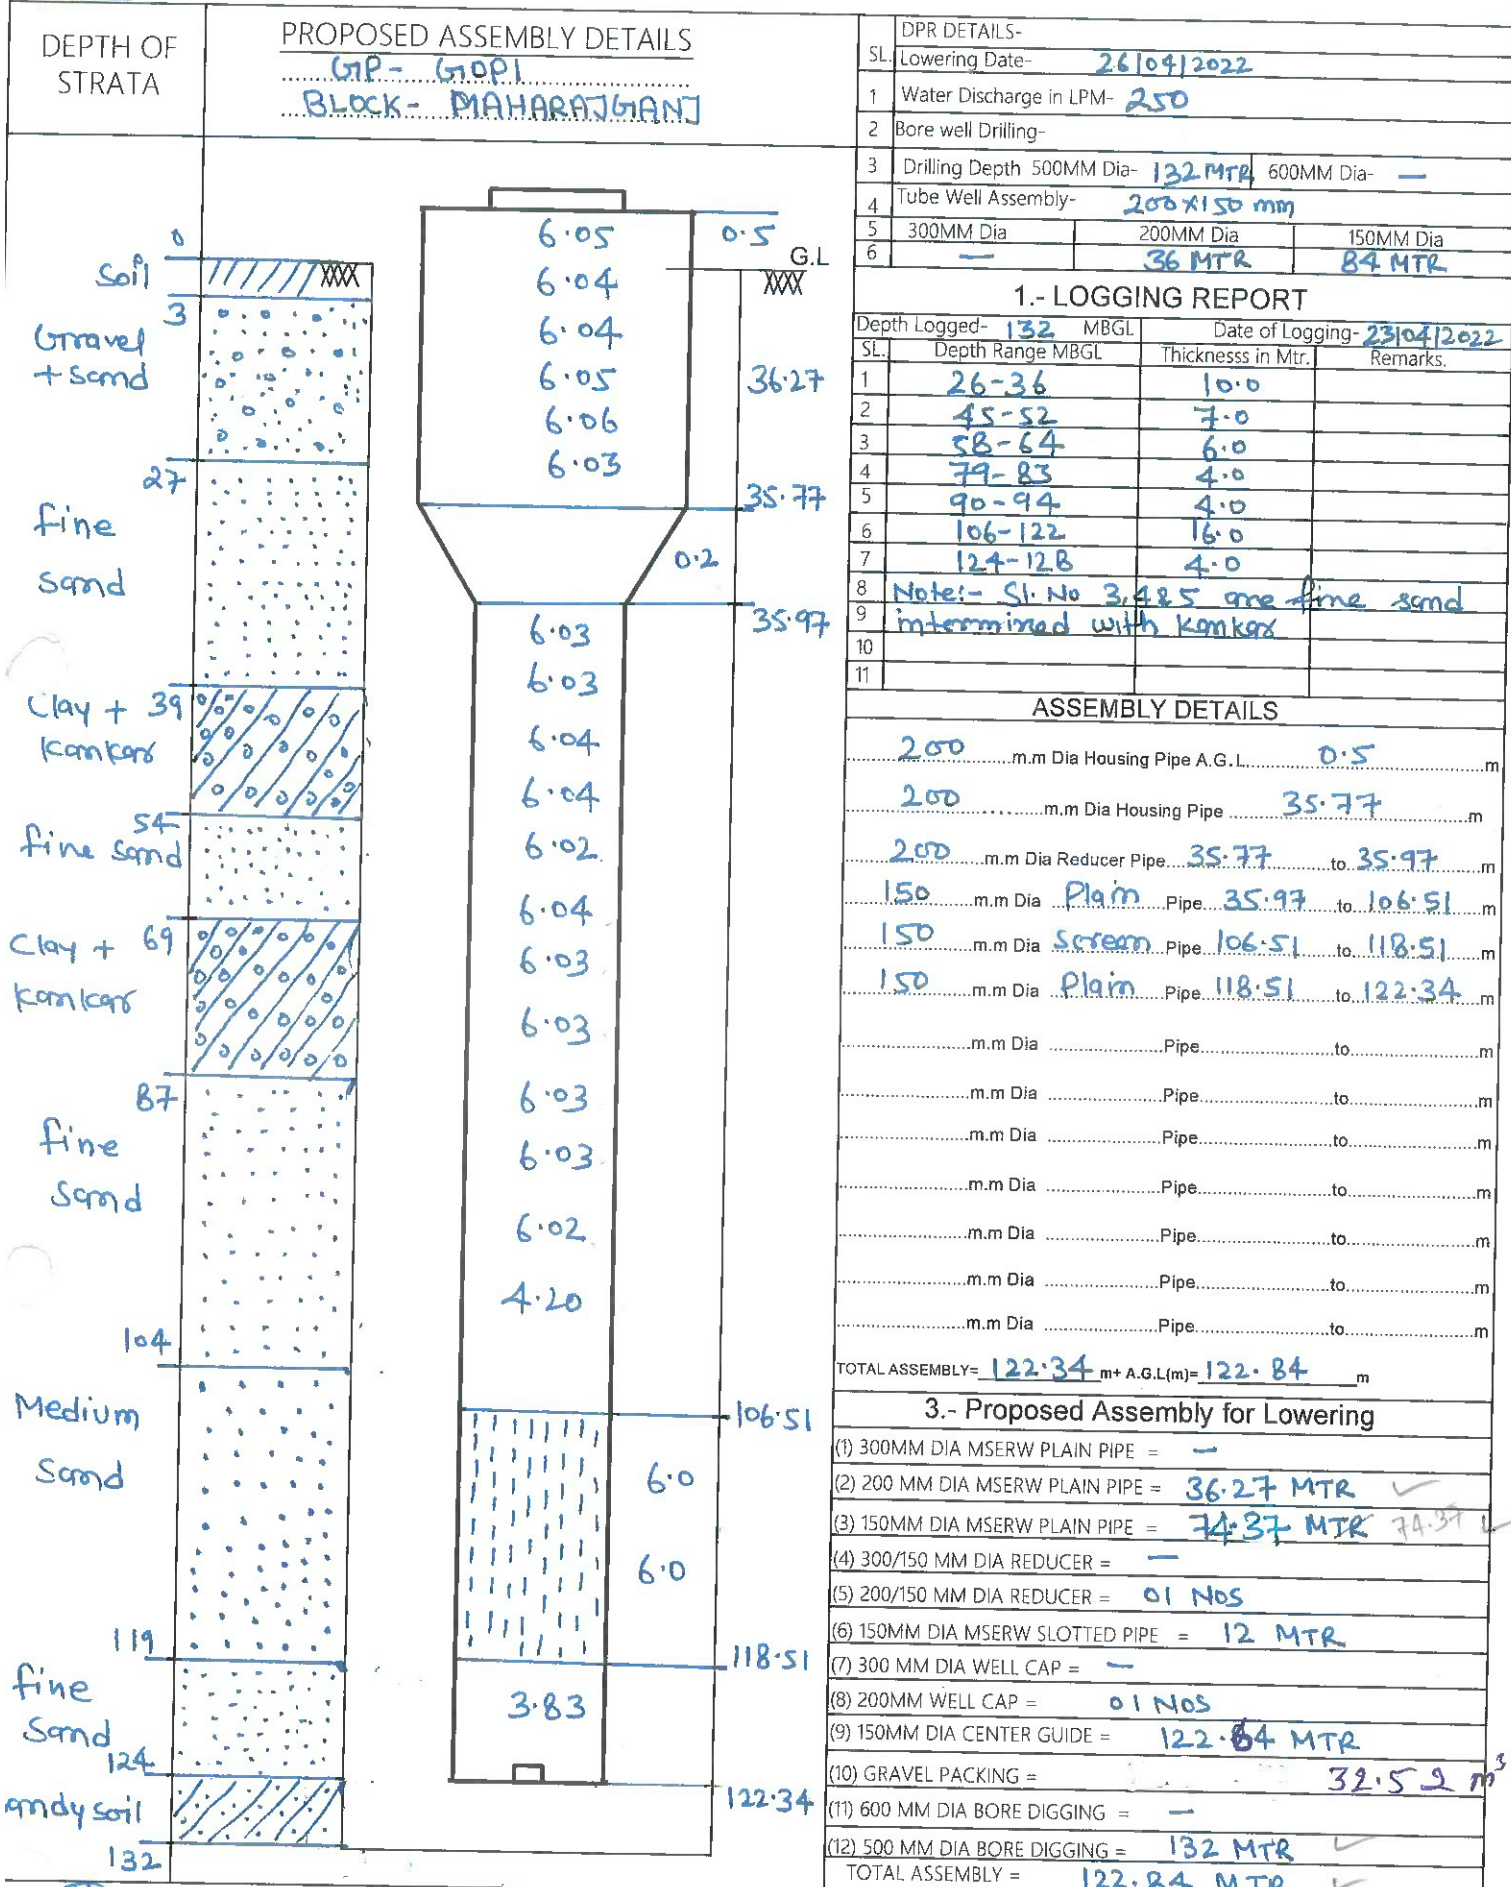 DEPTH OF
STRATA
PROPOSED ASSEMBLY DETAILS
GP- GOPI
BLOCK- MAHARAJGANJ
0
Soil
3
Gravel
+ sand
27
fine
sand
Clay + 39
Kankar
54
fine sand
Clay + 69
Kankar
87
fine
sand
104
Medium
Sand
119
fine
Sand
124
andy soil
132
6.05
6.04
6.04
6.05
6.06
6.03
0.5
G.L
36.27
35.77
0.2
35.97
6.03
6.03
6.04
6.04
6.02
6.04
6.03
6.03
6.03
6.03
6.02
4.20
106.51
6.0
6.0
118.51
3.83
122.34
DPR DETAILS-
SL. Lowering Date- 26/04/2022
1 Water Discharge in LPM- 250
2 Bore well Drilling-
3 Drilling Depth 500MM Dia- 132 MTR 600MM Dia- —
4 Tube Well Assembly- 200X150 mm
5 300MM Dia 200MM Dia 150MM Dia
6 — 36 MTR 84 MTR
1.- LOGGING REPORT
Depth Logged- 132 MBGL Date of Logging- 23/04/2022
SL. Depth Range MBGL Thicknesss in Mtr. Remarks.
1 26-36 10.0
2 45-52 7.0
3 58-64 6.0
4 79-83 4.0
5 90-94 4.0
6 106-122 16.0
7 124-128 4.0
8 Note:- Sl. No 3,4&5 are fine sand
9 intermined with kankar
10
11
ASSEMBLY DETAILS
200 m.m Dia Housing Pipe A.G.L. 0.5 m
200 m.m Dia Housing Pipe 35.77 m
200 m.m Dia Reducer Pipe 35.77 to 35.97 m
150 m.m Dia Plain Pipe 35.97 to 106.51 m
150 m.m Dia Screen Pipe 106.51 to 118.51 m
150 m.m Dia Plain Pipe 118.51 to 122.34 m
m.m Dia Pipe to m
m.m Dia Pipe to m
m.m Dia Pipe to m
m.m Dia Pipe to m
m.m Dia Pipe to m
m.m Dia Pipe to m
m.m Dia Pipe to m
TOTAL ASSEMBLY= 122.34 m+ A.G.L(m)= 122.84 m
3.- Proposed Assembly for Lowering
(1) 300MM DIA MSERW PLAIN PIPE = —
(2) 200 MM DIA MSERW PLAIN PIPE = 36.27 MTR
(3) 150MM DIA MSERW PLAIN PIPE = 74.37 MTR 74.37
(4) 300/150 MM DIA REDUCER = —
(5) 200/150 MM DIA REDUCER = 01 NOS
(6) 150MM DIA MSERW SLOTTED PIPE = 12 MTR
(7) 300 MM DIA WELL CAP = —
(8) 200MM WELL CAP = 01 NOS
(9) 150MM DIA CENTER GUIDE = 122.84 MTR
(10) GRAVEL PACKING = 32.52 m³
(11) 600 MM DIA BORE DIGGING = —
(12) 500 MM DIA BORE DIGGING = 132 MTR
TOTAL ASSEMBLY = 122.84 MTR